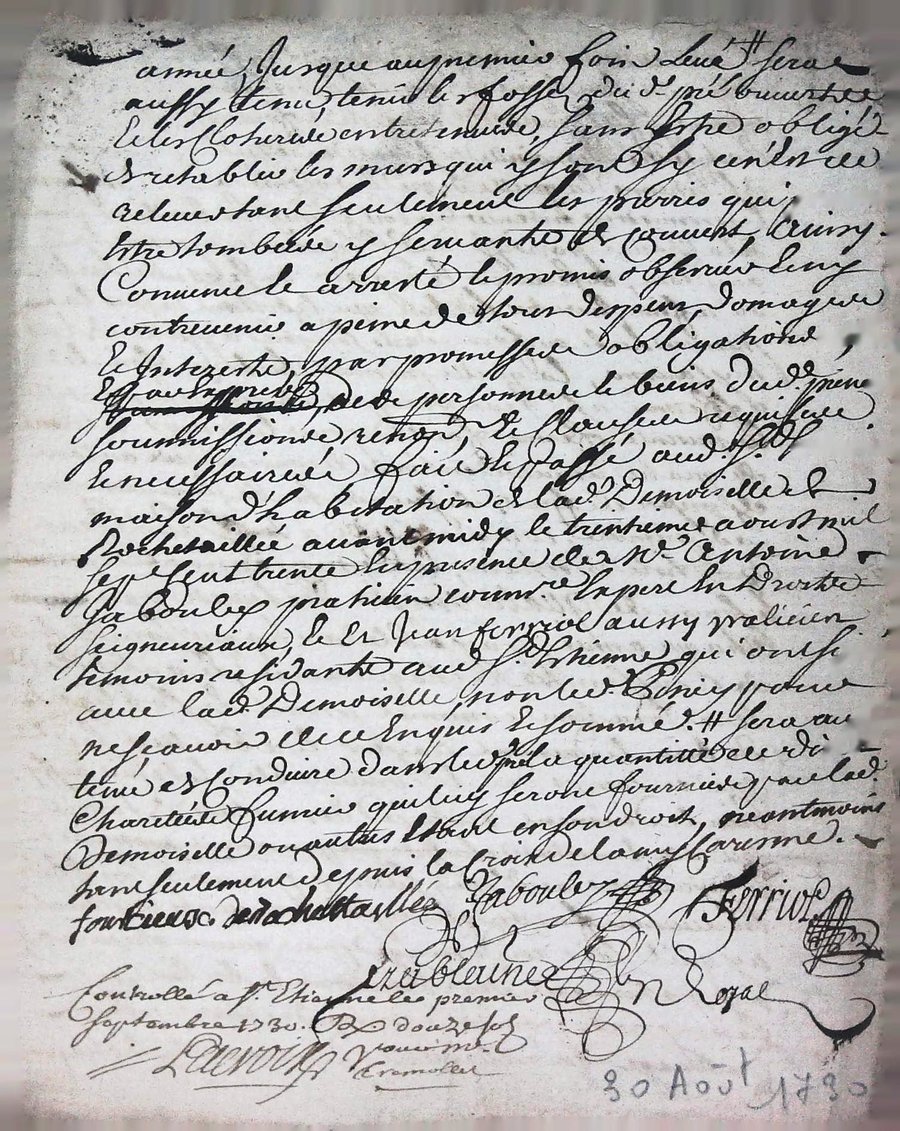 année, Jusque au premier foin Levé # sera
aussy tenu, tenir les fossés du d. pré ouverts
Et les Clotures entretenues, sans Estre obligé
de retablir les murs qui y sont sy ce n'est de
relever tant seulement les pierres qui
Estre tombées y servante de couvert, Ainsy
Convenu Et arresté Et promis observer
contrevenir a peine de tous despens, domages
Et Interests, par promesses obligations
de personnes Et biens dud. preneur
soumissions renon. Et Clauses requises
Et necessaires fait Et Passé aud. St.
maison d'habitation de lad. Demoiselle de
Rochetaillée avant midy le trentieme aoust mil
Sept Cent trente En presence de Me. Antoine
Jaboulex praticien Droits
seigneuriaux, Et Sr. Jean ferriol aussy praticien
temoins residants aud. St. Estienne qui ont si.
avec lad. Demoiselle, non led. pour
ne sçavoir de ce Enquis Et sommé. # sera au
tenu de Conduire dans led. pré la quantitté de dix
Charetées fumier qui luy seront fournies par lad.
Demoiselle ou autres Estant en son droit, neantmoins
tant seulement depuis la Croix de la
derochetaillée Jaboulex Ferriol
Royal
Controllé a St. Etienne le premier
Septembre 1730. R douze sols
30 Août 1730